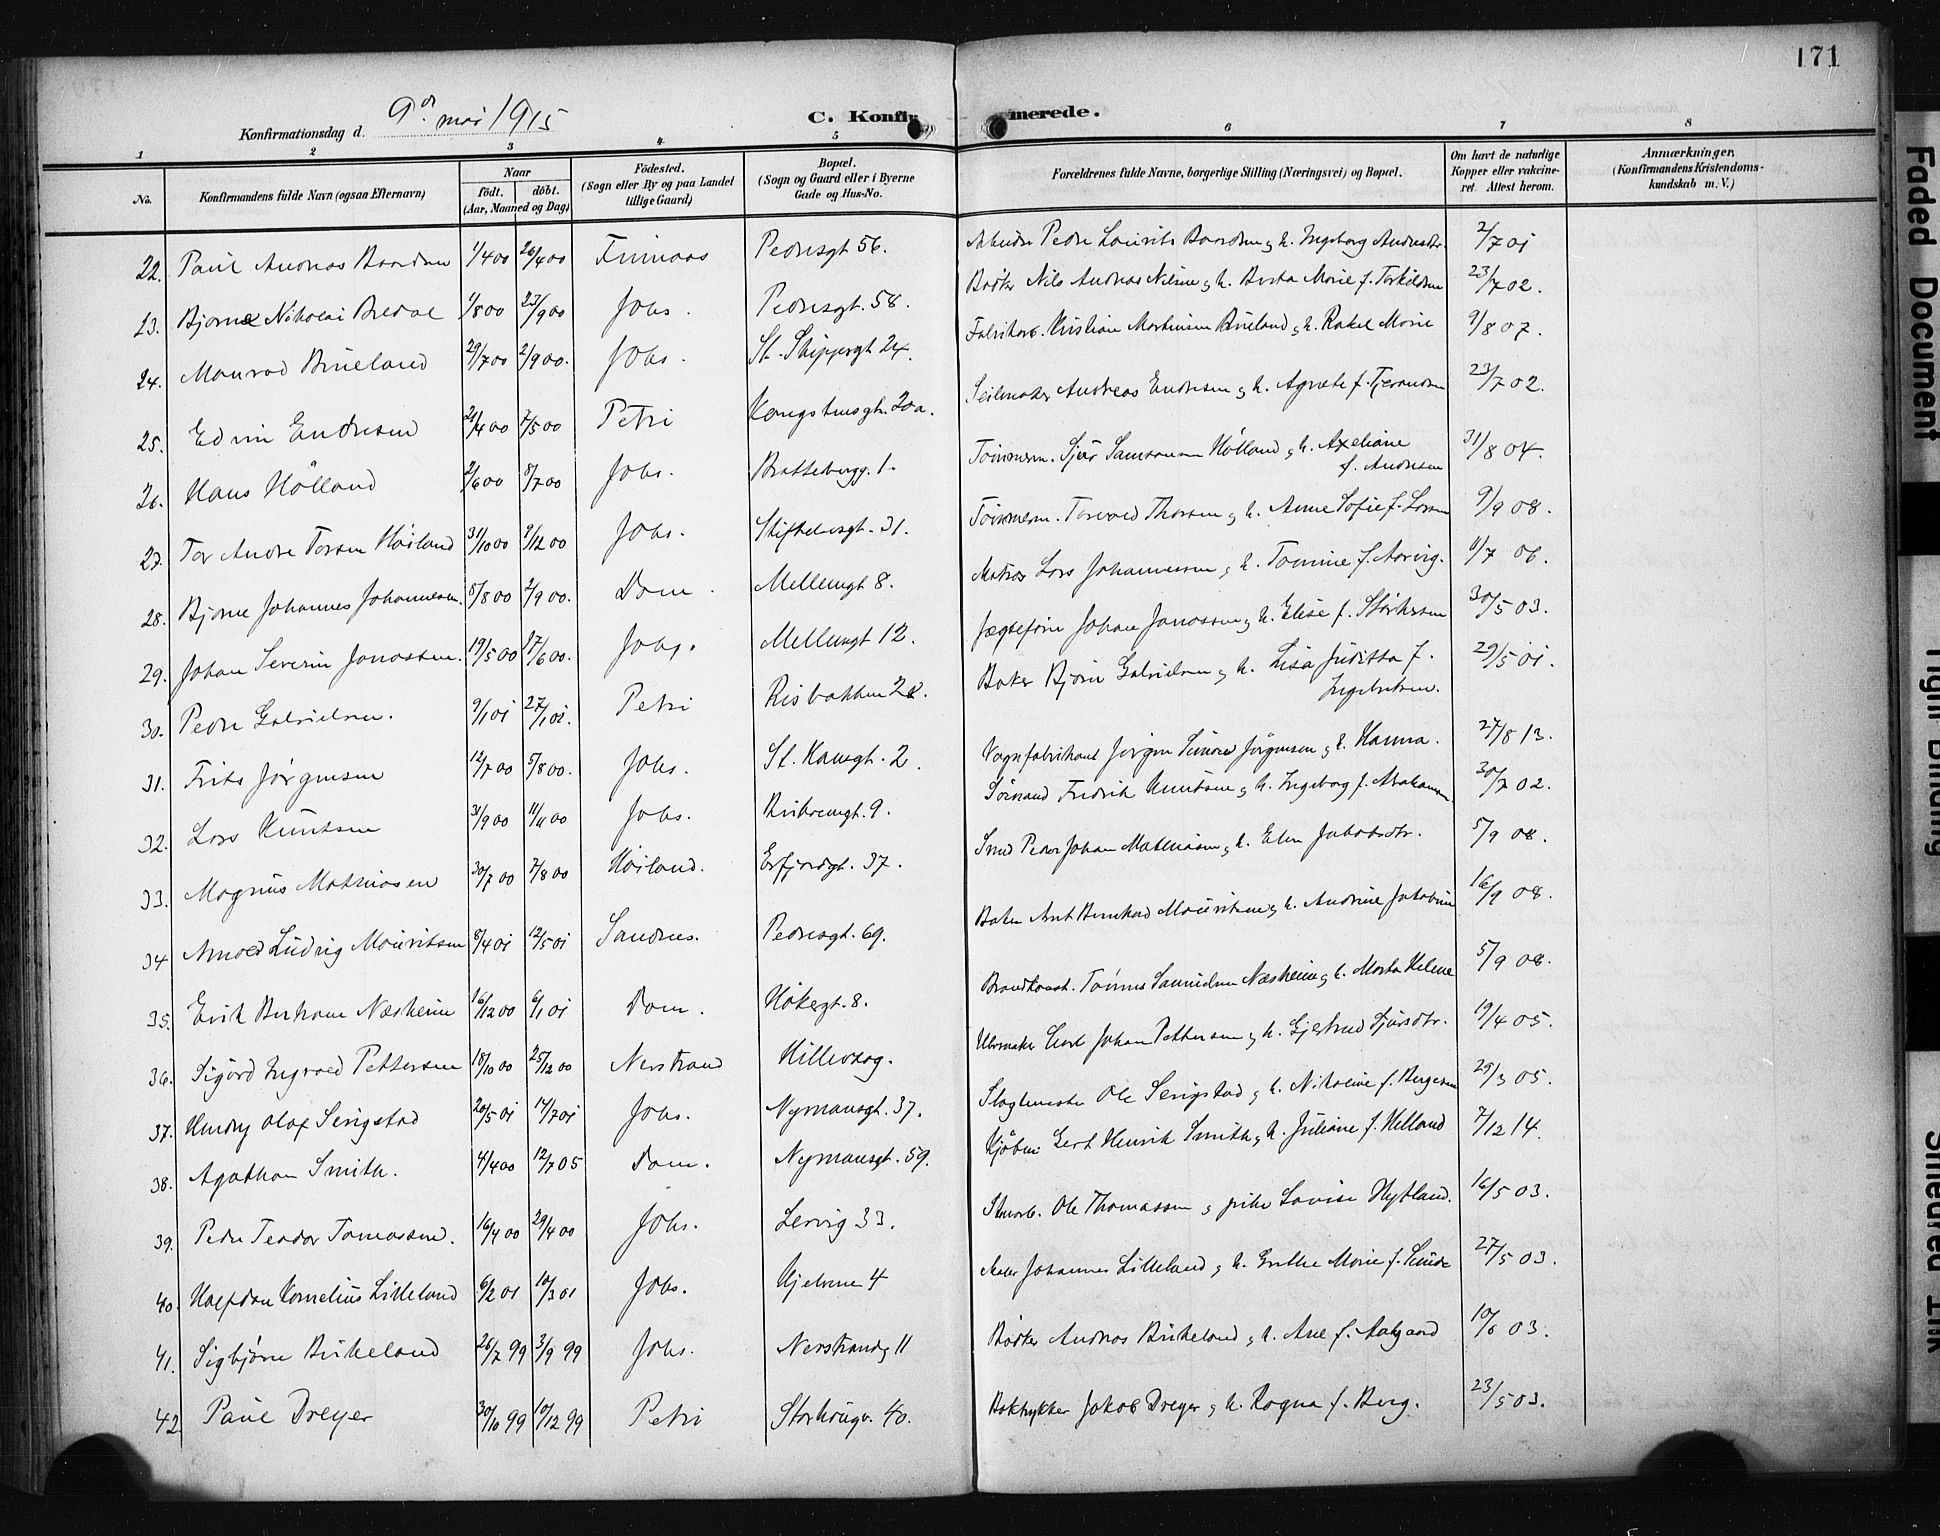 171
Konfirmationsdag d. 9de mai 1915
C. Konfirmerede.
1 2 3 4 5 6 7 8
No. Konfirmandens fulde Navn (ogsaa Efternavn) Naar födt. döbt. (Aar, Maaned og Dag) Födested. (Sogn eller By og paa Landet tillige Gaard) Bopæl. (Sogn og Gaard eller i Byerne Gade og Hus-No. Forældrenes fulde Navne, borgerlige Stilling (Næringsvei) og Bopæl. Om havt de naturlige Kopper eller vakcineret. Attest herom. Anmærkninger. (Konfirmandens Kristendomskundskab m. V.)
22. Paul Andreas 1/4 00 26/4 00 Pedersgt 56. Peder Lauritz & h. Ingeborg Andersdtr. 2/7 01
23. Bjarne Nikolai Bredal 1/8 00 23/9 00 Johs. Pedersgt. 58. Bødker Nils Andreas Nilsen & h. Berta Marie f. Torkildsen 23/7 02.
24. Monrad Brueland 29/7 00 2/9 00. Johs. St. Skippergt 24. Fabrikarb. Kristian Martinius Brueland & h. Rakel Marie 9/8 07.
25. Edvin Endresen 21/4 00 7/5 00 Petri Kongshusgt. 20a. Seilmaker Andreas Endresen & h. Agnete f. Tjerandsen 23/7 02.
26. Hans Hölland 2/6 00 8/7 00 Johs. Bratteberg. 1. Tömmerm. Sjur Samsonsen Hölland & h. Axeliane f. Andresen 31/8 04.
27. Tor Andre Torsen Höiland 31/10 00 9/12 00 Johs. Stiftelsesgt. 31. Tömmerm. Torvald Thorsen & h. Anne Sofie f. Larsen 9/9 08.
28. Bjarne Johannes Johannesen. 5/8 00 2/9 00. Dom. Mellemgt 8. Matros Lars Johannessen & h. Tomine f. Aarvig. 11/7 06.
29. Johan Severin Jonassen. 19/5 00 17/6 00. Johs. Mellemgt 12. Jægtefører Johan Jonassen & h. Elise f. Størkersen 30/5 03.
30. Peder Gabrielsen. 9/1 01 27/1 01. Petri Risbakken 22. Baker Bjørn Gabrielsen & h. Lisa Juditta f. Ingebretsen. 29/5 01.
31. Frits Jörgensen 12/7 00 5/8 00. Johs. St. Hansgt. 2. Vognfabrikant Jörgen Simon Jörgensen & h. Hanna. 27/8 13.
32. Lars Knutsen 3/9 00 11/11 00 Johs. 9. Sömand Fredrik Knutsen & h. Ingeborg f. Abrahamsen 30/7 02.
33. Magnus Mathiasen 30/7 00 7/8 00 Höiland. Erfjordgt. 37. Smed Peder Johan Mathiasen & h. Elen Jakobsdtr. 5/9 08.
34 Arnold Ludvig Mauritsen 8/4 01 12/5 01 Sandnes. Pedersgt. 69. Baker Arnt Bernhard Mauritsen & h. Andrine Jakobine 16/9 08.
35. Erik Bertram Næsheim 16/12 00 6/1 01 Dom. Hökergt. 8. Brandkonst. Tönnes Samuelsen Næsheim & h. Marta Helene 5/9 08.
36. Sigurd Ingvald Pettersen 18/10 00 25/12 00 Nerstrand Hillevaag. Uhrmaker Carl Johan Pettersen & h. Gjertrud Sjursdtr. 19/4 05.
37. Henry Olaf Serigstad 20/5 01 14/7 01 Johs. Nymansgt. 37. Slagtmester Ole Serigstad & h. Nikoline f. Bergesen 29/3 05.
38. Agathon Smith. 4/4 00 12/7 05 Dom. Nymansgt. 59. Kjöbm. Gert Henrik Smith & h. Juliane f. Helland 7/12 14.
39. Peder Teodor Tomassen. 16/4 00 29/4 00 Johs. Lervig 33. Ole Thomassen & pike Lovise Hytland. 16/5 03.
40. Halfdan Kornelius Lilleland 6/2 01 10/3 01 Johs. Hjelmm 4 Maler Johannes Lilleland & h. Grethe Marie f. Sunde 27/5 03.
41. Sigbjörn Birkeland 26/7 99 3/9 99 Johs. Nerstrandg 11 Bödker Andreas Birkeland & h. Ane f. Aalgaard 10/6 03.
42 Paul Dreyer 30/10 99 10/12 99 Petri Storhaugv. 40. Boktrykker Jakob Dreyer & h. Ragna f. Berg. 23/5 03.
Faded Document
Tight Binding
Smeared Ink